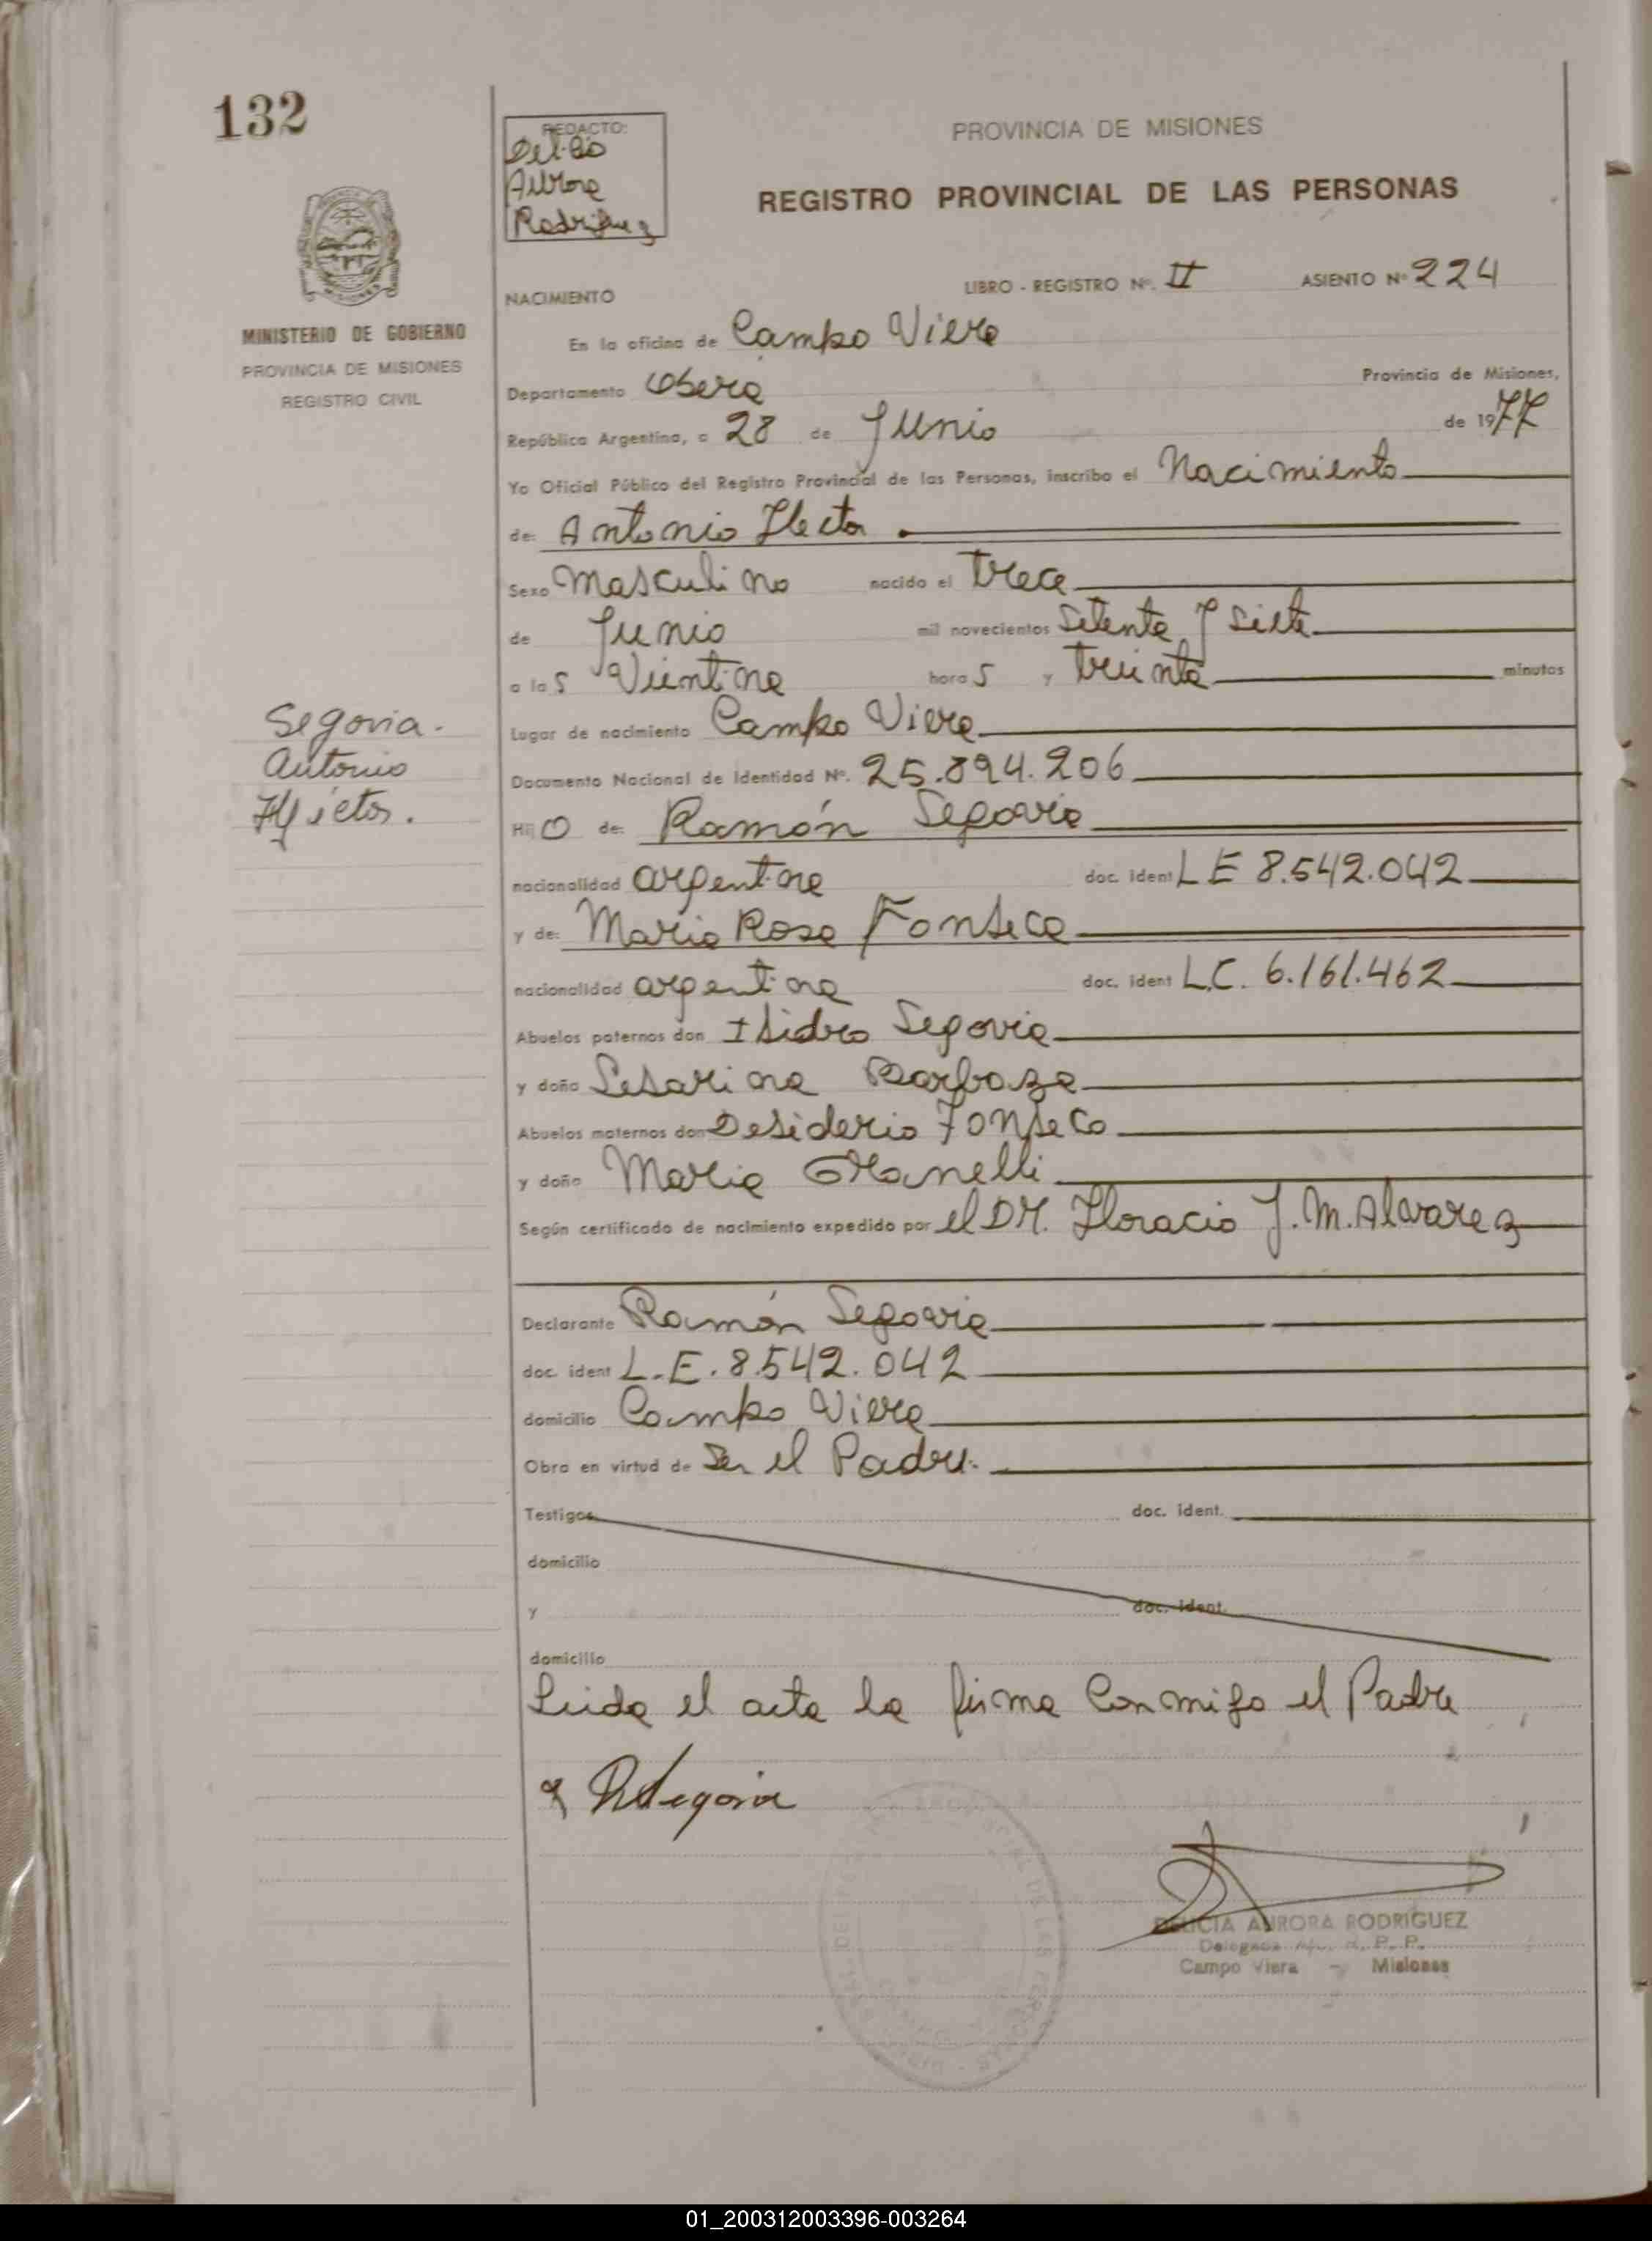 132
REDACTO:
Aurora
Rodriguez
PROVINCIA DE MISIONES
REGISTRO PROVINCIAL DE LAS PERSONAS
MINISTERIO DE GOBIERNO
PROVINCIA DE MISIONES
REGISTRO CIVIL
NACIMIENTO LIBRO - REGISTRO Nº. II ASIENTO Nº 224
En la oficina de Campo Viera
Departamento Oberá Provincia de Misiones,
República Argentina, a 28 de Junio de 1977
Yo Oficial Público del Registro Provincial de las Personas, inscribo el Nacimiento
de: Antonio Hector
Sexo Masculino nacido el trece
de Junio mil novecientos Setenta y siete
a las Vientina horas y treinta minutos
Lugar de nacimiento Campo Viera
Documento Nacional de Identidad Nº. 25.894.206
Hijo de: Ramón Segovia
nacionalidad argentina doc. ident LE 8.542.042
y de: Maria Rosa Fonseca
nacionalidad argentina doc. ident L.C. 6.161.462
Abuelos paternos don Isidro Segovia
y doña Sesarina Barboza
Abuelos maternos don Desiderio Fonseca
y doña Maria Granelli
Según certificado de nacimiento expedido por el DR. Horacio J. M. Alvarez
Segovia.
Antonio
Declarante Ramón Segovia
doc. ident L.E. 8.542.042
domicilio Campo Viera
Obra en virtud de Ser el Padre.
Testigos doc. ident.
domicilio
y doc. ident.
domicilio
Leida el acta la firma Conmigo el Padre
RSegovia
DELICIA AURORA RODRIGUEZ
Campo Viera - Misiones
01_200312003396-003264